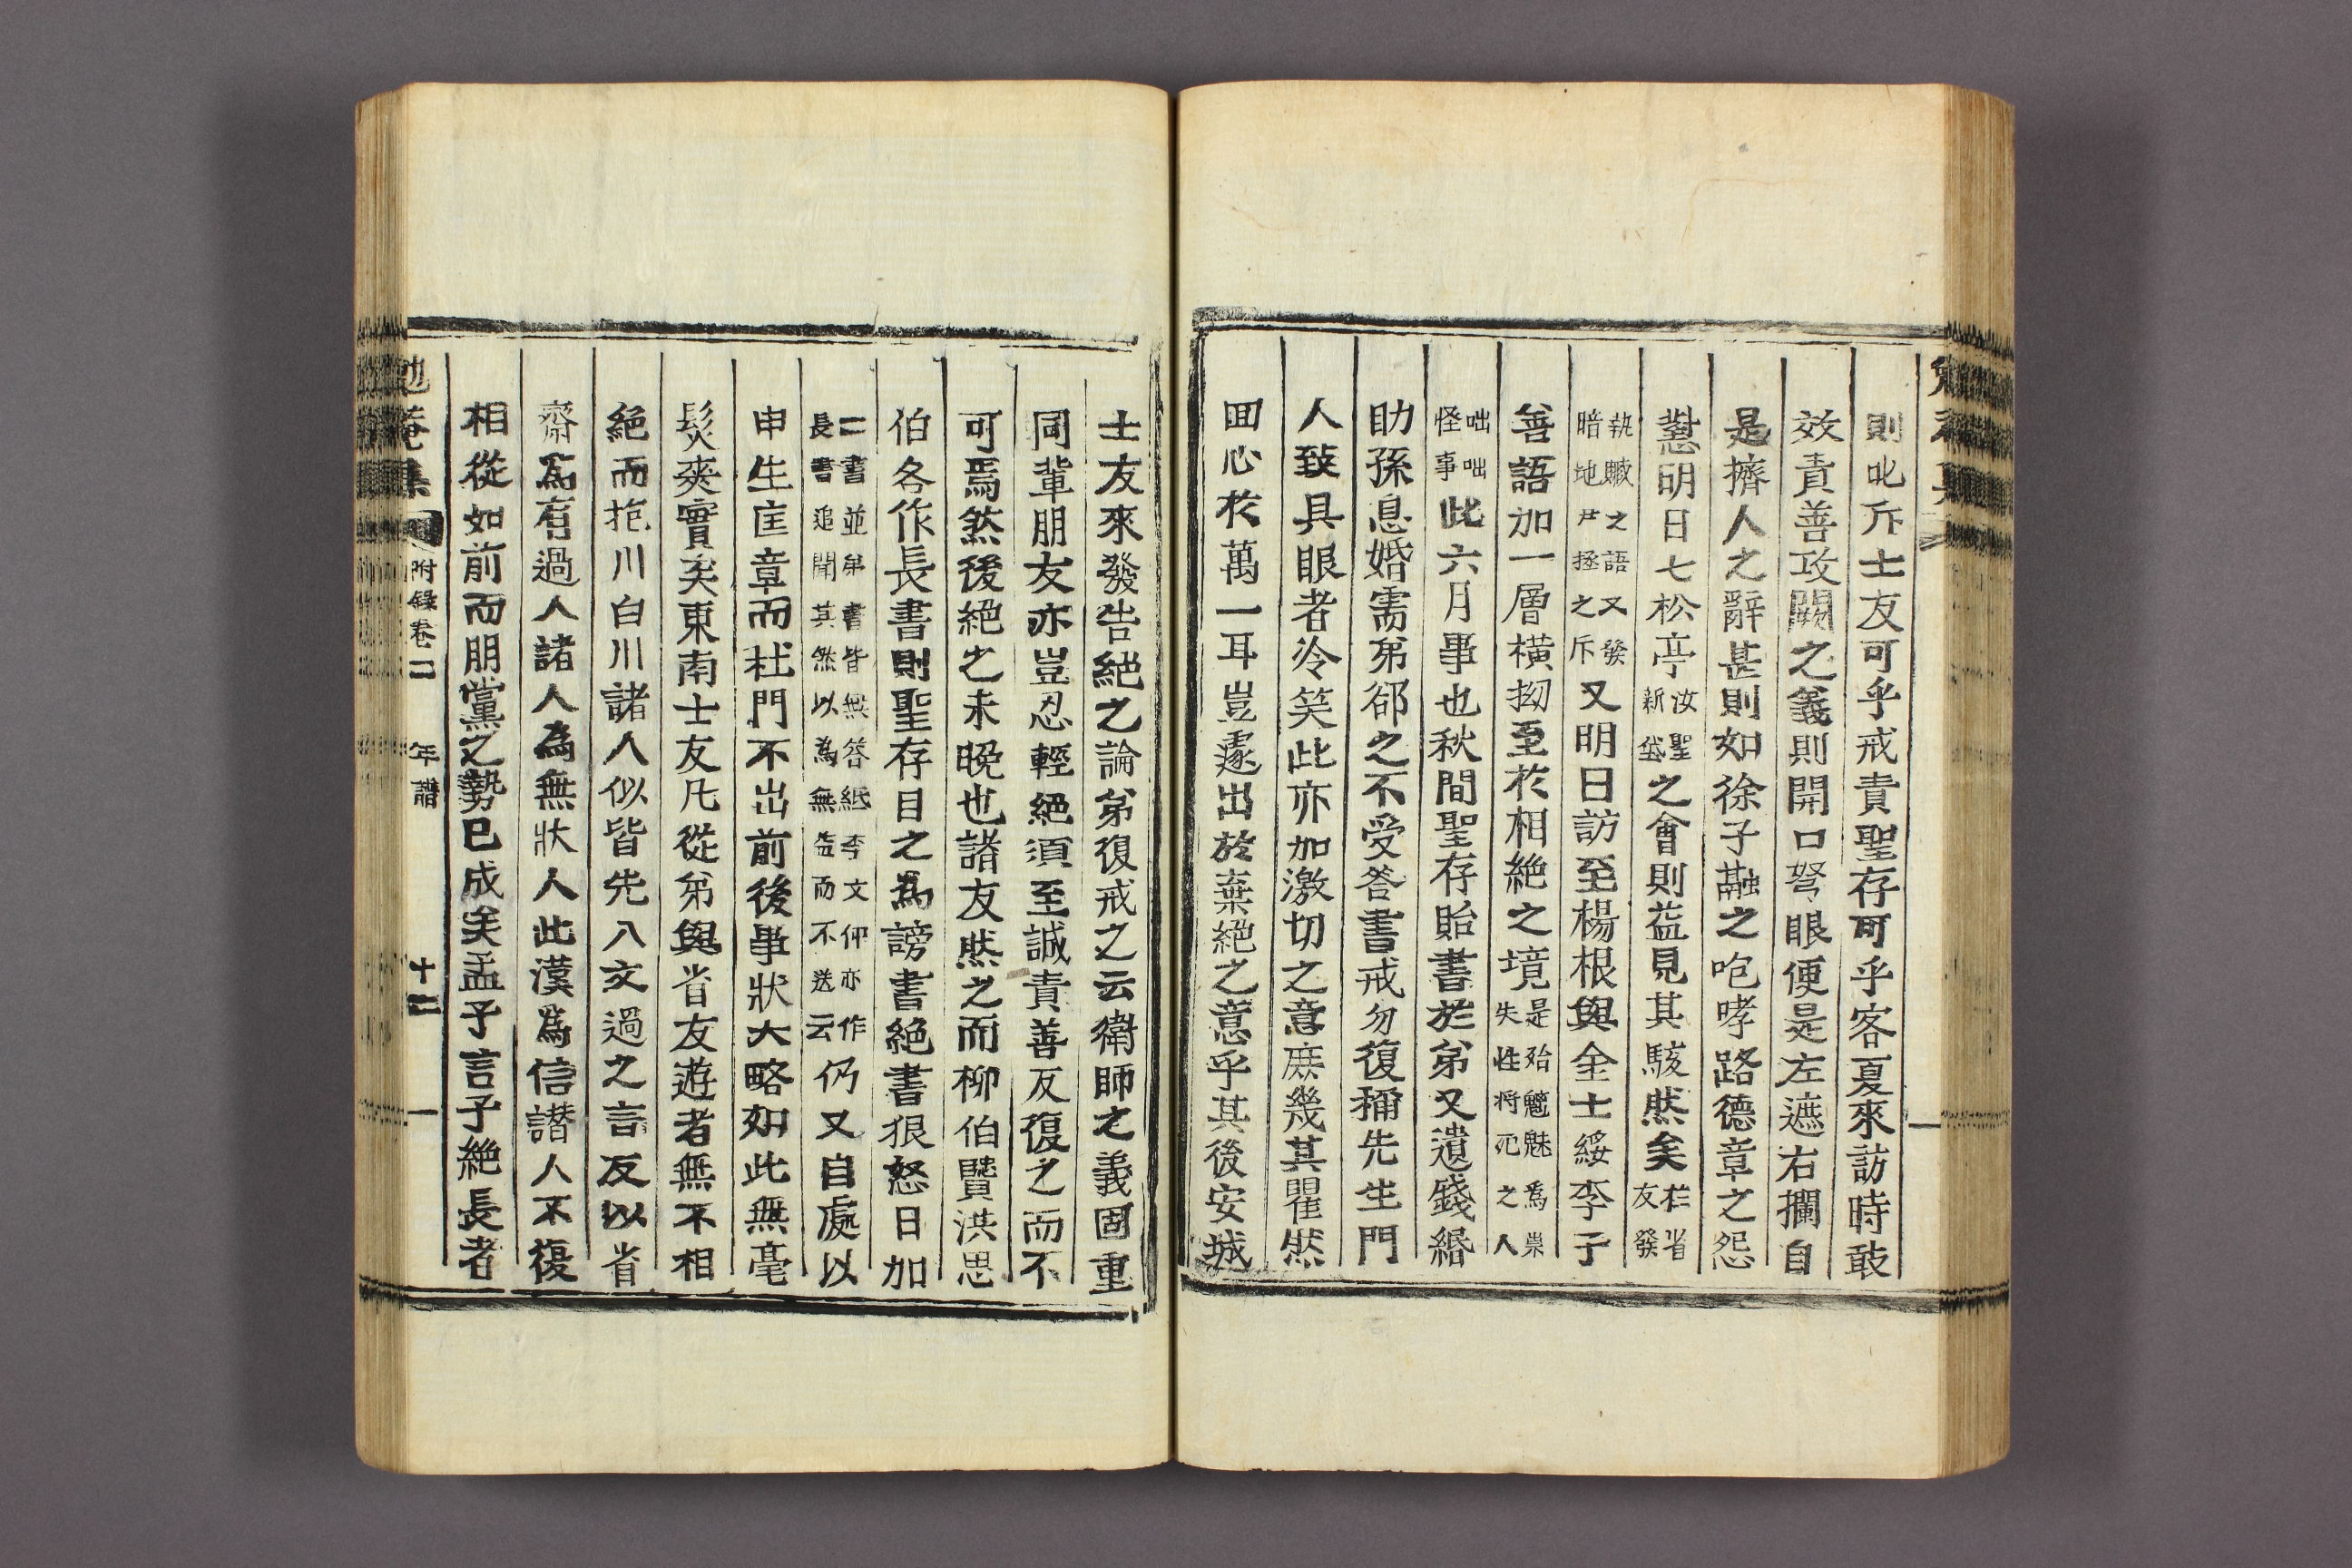 則叱斥士友可乎戒責聖存可乎客夏來訪時敢
效責善攻闕之義則開口弩眼便是左遮右攔自
是擠人之辭甚則如徐子融之咆哮路德章之怨
懟明日七松亭汝聖新岱之會則益見其駭然矣栏省友發
執贓之語又發暗地尸拯之斥又明日訪至楊根與金士綏李子
善語加一層橫拗至於相絶之境是殆魑魅爲祟失性將死之人
咄咄怪事此六月事也秋間聖存貽書於弟又遺錢緡
助孫息婚需弟郤之不受答書戒勿復稱先生門
人致具眼者冷笑此亦加激切之意庶幾其瞿然
回心於萬一耳豈遽出於棄絶之意乎其後安城
士友來發告絶之論弟復戒之云衛師之義固重
同輩朋友亦豈忍輕絶須至誠責善反復之而不
可焉然後絶之未晩也諸友然之而柳伯賢洪思
伯各作長書則聖存目之爲謗書絶書狠怒日加
二書並弟書皆無答紙李文仲亦作長書追聞其然以爲無益而不送云仍又自處以
申生匡章而杜門不出前後事狀大略如此無毫
髮爽實矣東南士友凡從弟與省友遊者無不相
絶而抱川白川諸人似皆先入文過之言反以省
齋爲有過人諸人爲無狀人此漢爲信譖人不復
相從如前而朋黨之勢已成矣孟子言子絶長者
勉菴集 附錄卷二 年譜 十二